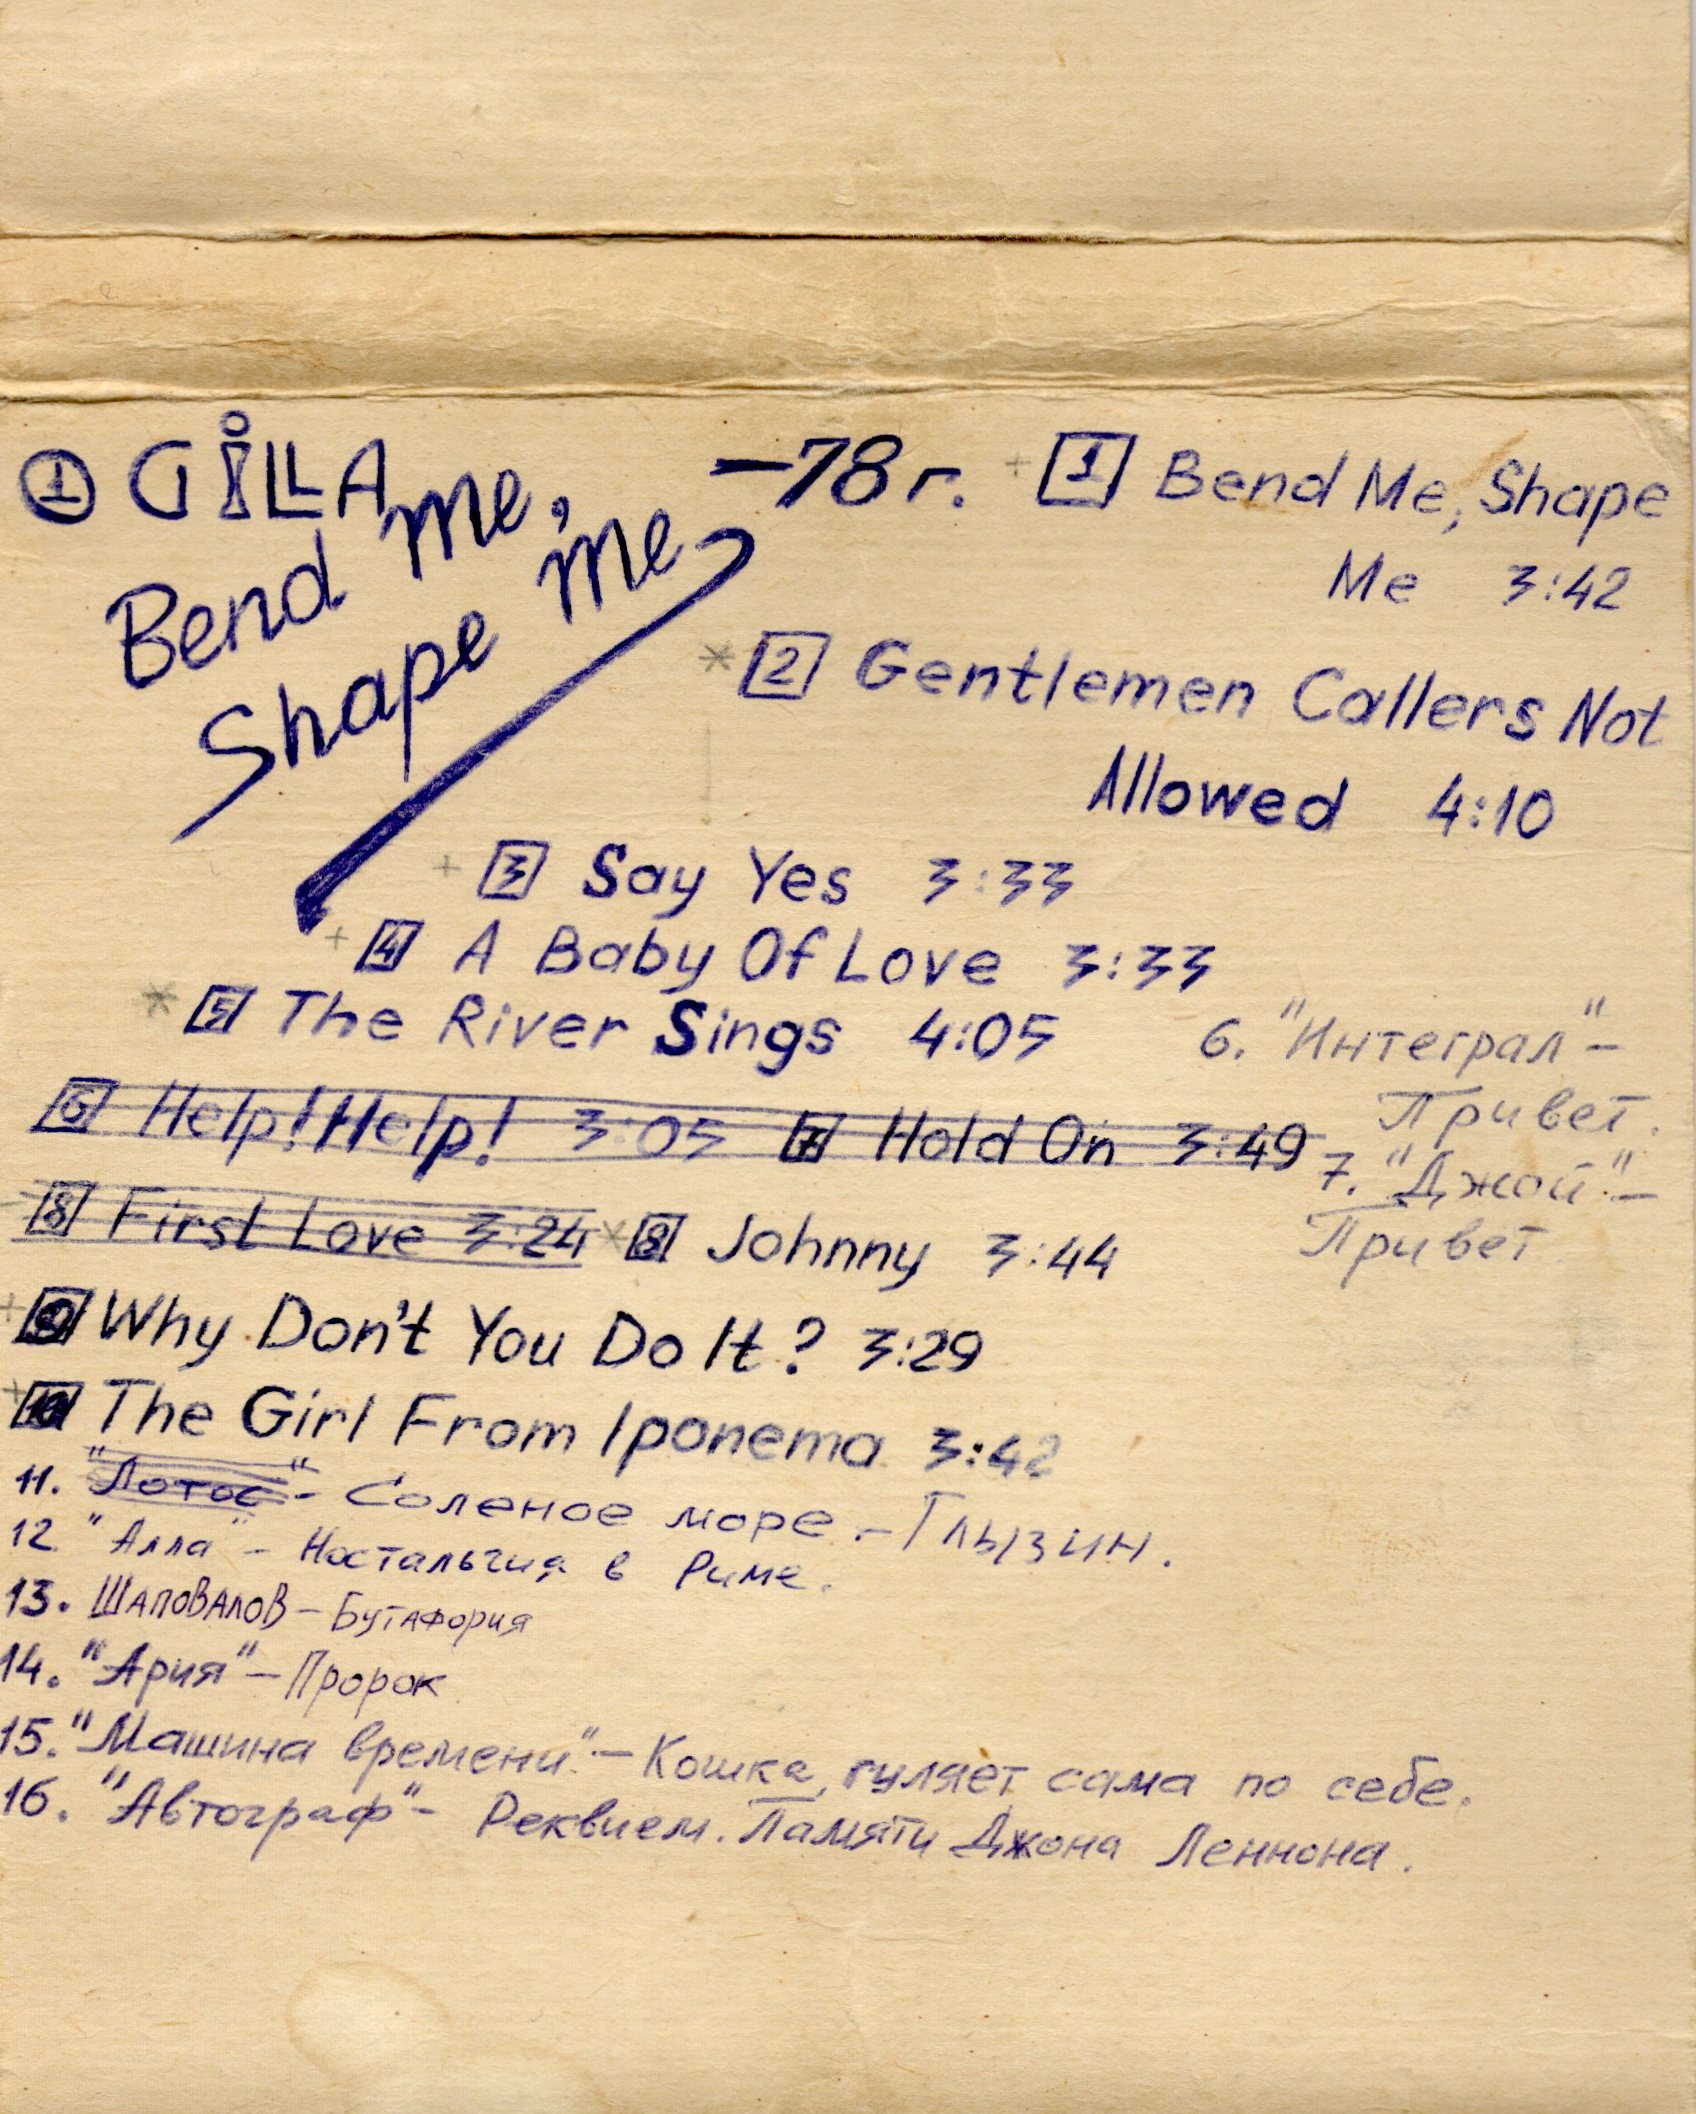 ① GILLA -78 г.
Bend me,
Shape me
+ 1 Bend Me, Shape
Me 3:42
* 2 Gentlemen Callers Not
Allowed 4:10
+ 3 Say Yes 3:33
+ 4 A Baby Of Love 3:33
* 5 The River Sings 4:05
6 Help! Help! 3:05 7 Hold On 3:49
8 First Love 3:24 * 8 Johnny 3:44
+ 9 Why Don't You Do It? 3:29
+ 10 The Girl From Iponema 3:42
6. "Интеграл" -
Привет.
7. "Джой" -
Привет
11. "Лотос" - Соленое море. - Глызин.
12 "Алла" - Ностальгия в Риме.
13. ШАПОВАЛОВ - БУТАФОРИЯ
14. "Ария" - Пророк
15. "Машина времени" - Кошка, гуляет сама по себе.
16. "Автограф" - Реквием. Памяти Джона Леннона.